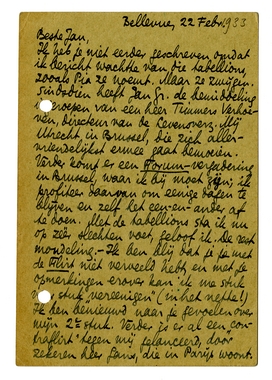 Bellevue, 22 Febr. 1933
Beste Jan,
Ik heb je niet eerder geschreven omdat
ik bericht wachtte van die tabellions,
zooals Pia ze noemt. Maar ze zwijgen.
Sindsdien heeft Jan Gr. de bemiddeling
ingeroepen van een heer Timmer Verhoe-
ven, directeur van de Levensverz. Mij
Utrecht in Brussel, die zich aller-
vriendelijkst ermee gaat bemoeien.
Verder komt er een Forum-vergadering
in Brussel, waar ik bij moet zijn; ik
profiteer daarvan om eenige dagen te
blijven en zelf het een-en-ander af
te doen. Met de tabellions sta ik nu
op zeer slechten voet, geloof ik. De rest
mondeling. – Ik ben blij dat je je met
de Flirt niet verveeld hebt en met je
opmerkingen erover kan ik me stuk
voor stuk vereenigen (in het nette!)
Ik ben benieuwd naar je gevoelen over
mijn 2e stuk. Verder is er al een con-
traflirt tegen mij gelanceerd, door
zekeren heer Gans, die in Parijs woont.